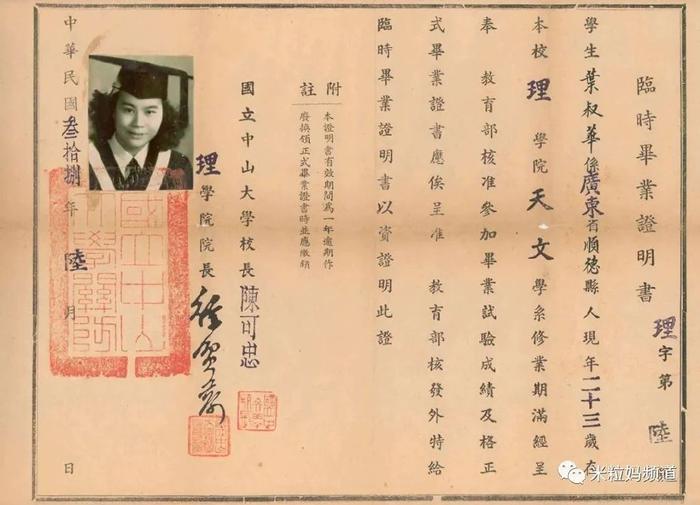 臨時畢業證明書
理字第陸號
學生葉叔華係廣東省順德縣人現年二十三歲在
本校理學院天文學系修業期滿經呈
奉 教育部核准參加畢業試驗成績及格正
式畢業證書應俟呈准 教育部核發外特給
臨時畢業證明書以資證明此證
附註
本證明書有效期間為一年逾期作
廢換領正式畢業證書時並應繳銷
國立中山大學校長陳可忠
理學院院長
中華民國叁拾捌年陸月 日
國立中山大學關防
米粒妈频道